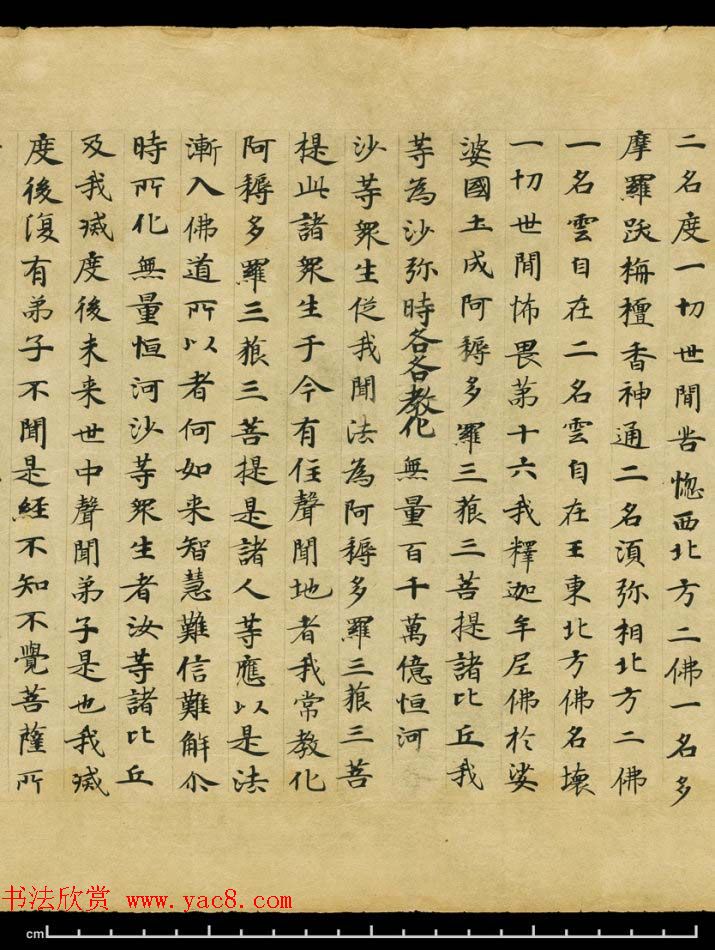 二名度一切世間苦惚西北方二佛一名多
摩羅跋栴檀香神通二名湏弥相北方二佛
一名雲自在二名雲自在王東北方佛名壞
一切世間怖畏苐十六我釋迦牟尼佛於娑
婆國土成阿耨多羅三藐三菩提諸比丘我
等為沙弥時各各教化無量百千萬億恒河
沙等衆生従我聞法為阿耨多羅三藐三菩
提此諸衆生于今有住聲聞地者我常教化
阿耨多羅三藐三菩提是諸人等應以是法
漸入佛道所以者何如来智慧難信難解尒
時所化無量恒河沙等衆生者汝等諸比丘
及我滅度後未来世中聲聞弟子是也我滅
度後復有弟子不聞是經不知不覺菩薩所
cm
书法欣赏 www.yac8.com